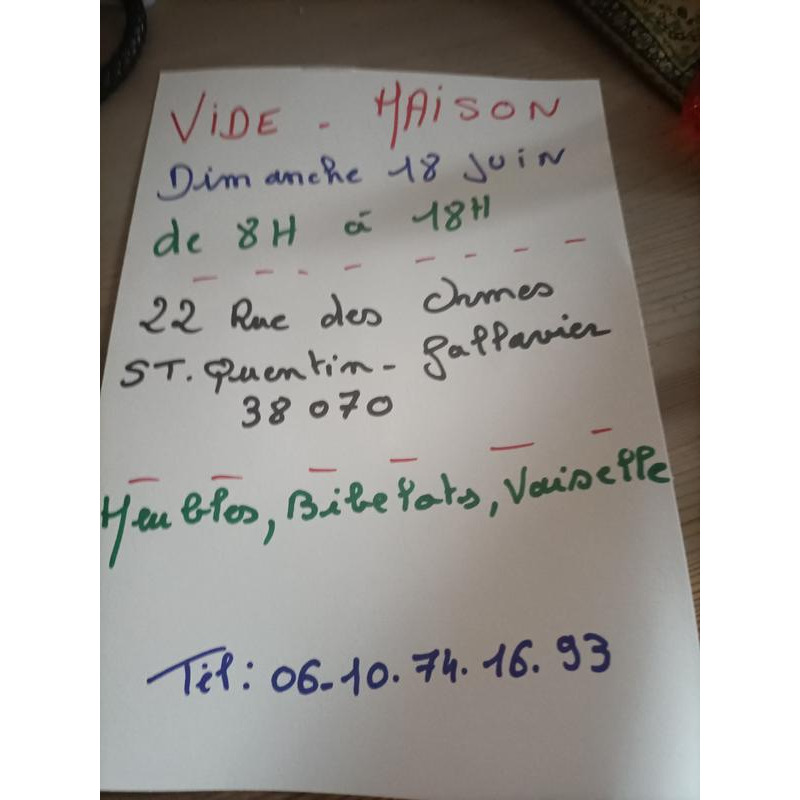 VIDE - MAISON
Dimanche 18 JUIN
de 8H à 18H
22 Rue des Ormes
ST. Quentin - Fallavier
38070
Meubles, Bibelots, Vaiselle
Tél: 06-10.74.16.93